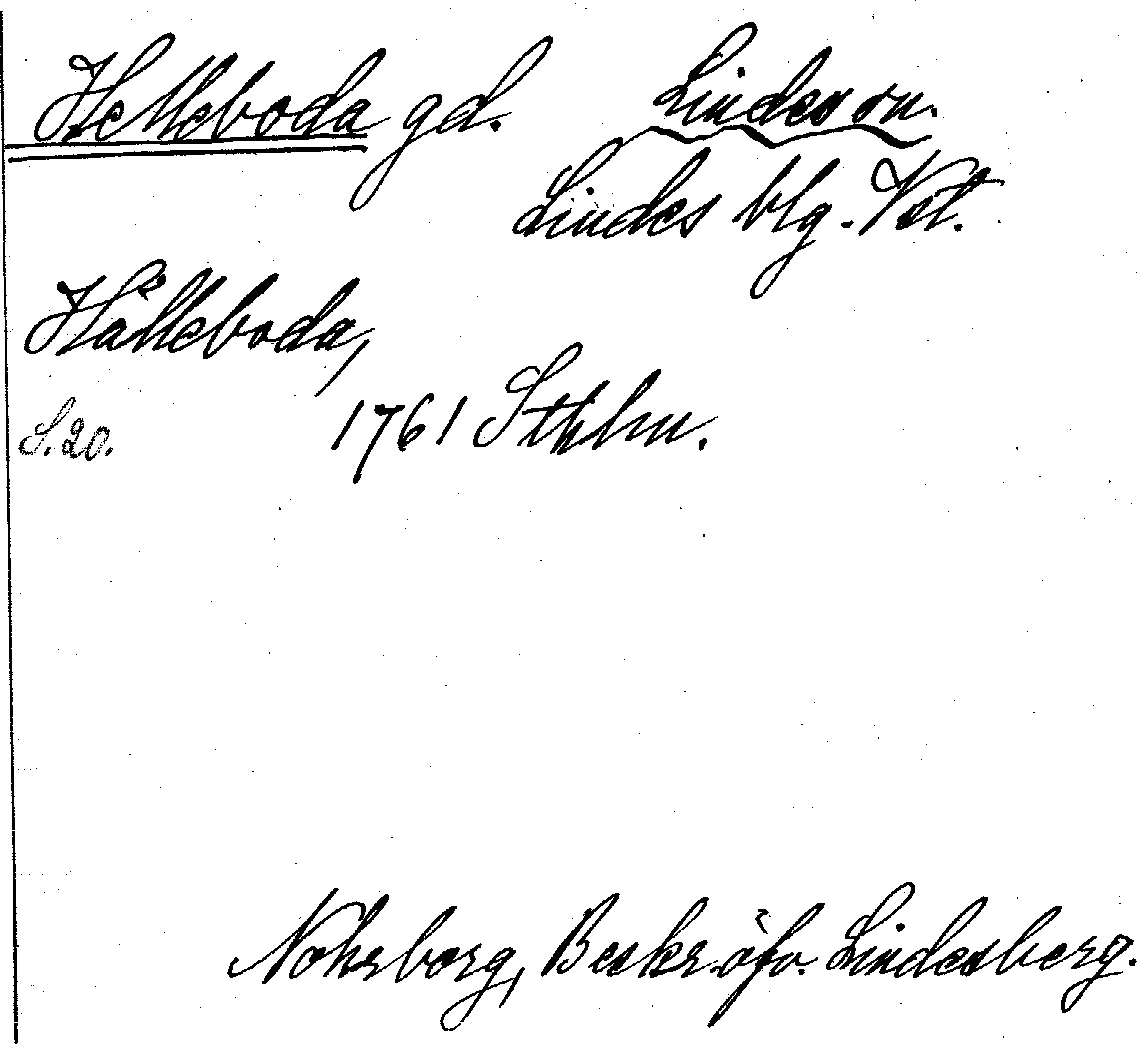 Helleboda gd. Lindes sn.
Lindes blg. Vstl.
Hälleboda,
S. 20. 1761 Sthlm.
Nohrborg, Beskr. öfv. Lindesberg.